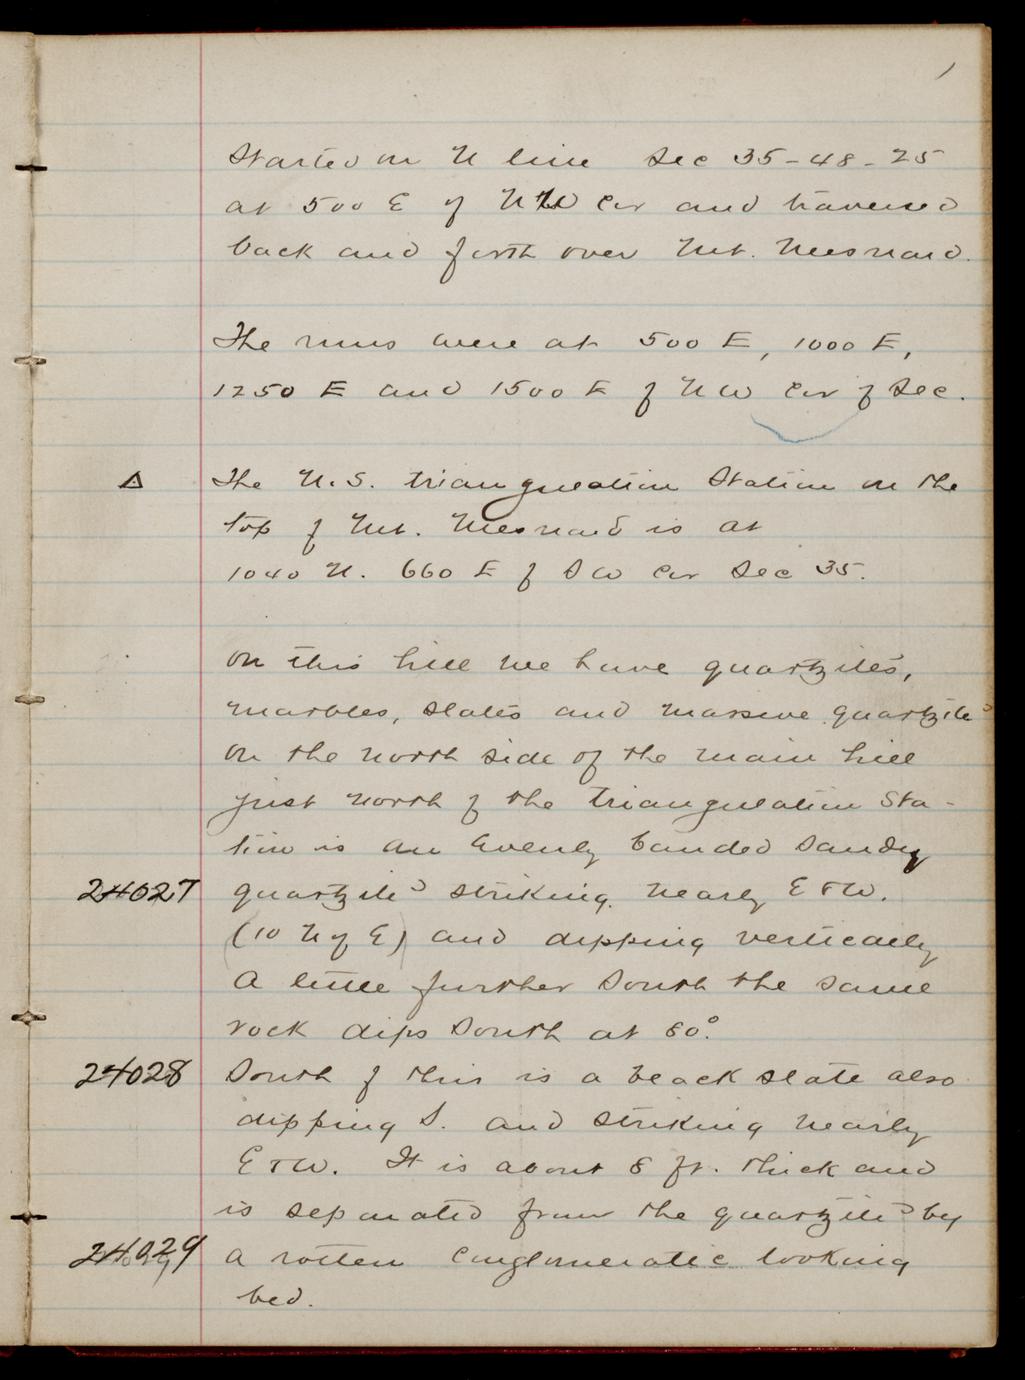 1
Started on N line Sec 35-48-25
at 500 E of NW Cor and traversed
back and forth over Mt. Mesnard.
The runs were at 500 E, 1000 E,
1250 E and 1500 E of NW Cor of Sec.
Δ The U.S. triangulation Station on the
top of Mt. Mesnard is at
1040 N. 660 E of SW Cor Sec 35.
On this hill we have quartzites,
marbles, slates and massive quartzite
On the north side of the main hill
just north of the triangulation Sta-
tion is an Evenly banded Sandy
24027 quartzite striking nearly E & W.
(10 N of E) and dipping vertically
A little further South the same
rock dips South at 80°.
24028 South of this is a black slate also
dipping S. and striking nearly
E & W. It is about 8 ft. thick and
is separated from the quartzite by
24029 a rotten Conglomeratic looking
bed.